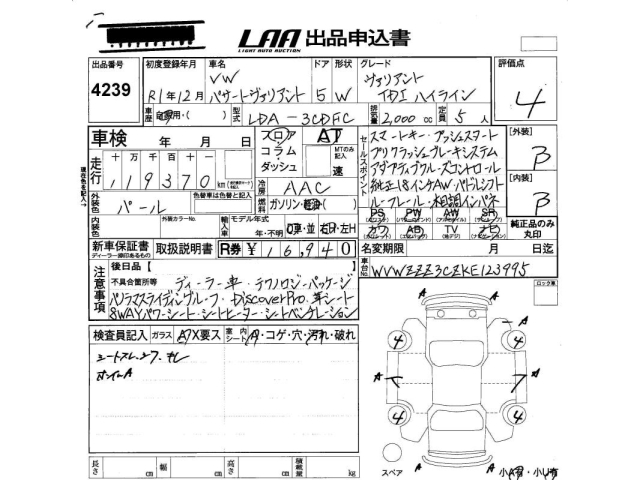 LAA 出品申込書
LIGHT AUTO AUCTION
出品番号
4239
初度登録年月 車名 ドア 形状 グレード
R1年12月 VW パサートヴァリアント 5 W ヴァリアント TDI ハイライン
評価点
4
車歴 自家用・( ) 型式 LDA-3CDFC 排気量 2,000cc 定員 5人
車検 年 月 日
シフト フロア AT
コラム・ MTのみ記入
ダッシュ 速
走行 十 万 千 百 十
119370 km
現在色を記入→
外装色 パール
色替車は色替と記入
冷房 AAC
燃料 ガソリン・軽油( )
内装色 外装カラーNo. 輸入車 モデル年式 年・不明 D車・並 右H・左H
セールスポイント
スマートキー・プッシュスタート
プリクラッシュブレーキシステム
アダプティブクルーズコントロール
純正18インチAW・パドルシフト
ルーフレール・木目調インパネ
PS PW AW SR
カワ AB TV ナビ
[外装] B
[内装] B
純正品のみ丸印
新車保証書 取扱説明書 R券 ¥16,940
ディーラー捺印あるもの
名変期限 月 日迄
車台No. WVWZZZ3CZKE123995
注意事項
後日品【 】
不具合箇所等 ディーラー車・テクノロジーパッケージ
パノラマスライディングルーフ・DiscoverPro・革シート
8WAYパワーシート・シートヒーター・シートベンチレーション
検査員記入 ガラス A・X要ス 室内シート A・コゲ・穴・汚れ・破れ
シートスレ・シワ・キレ
ホイールA
ロック車
A A
4 4
A A
4 4
A A
A A
スペア 小A・小U有
長さ cm 幅 cm 高さ cm 積載量 kg